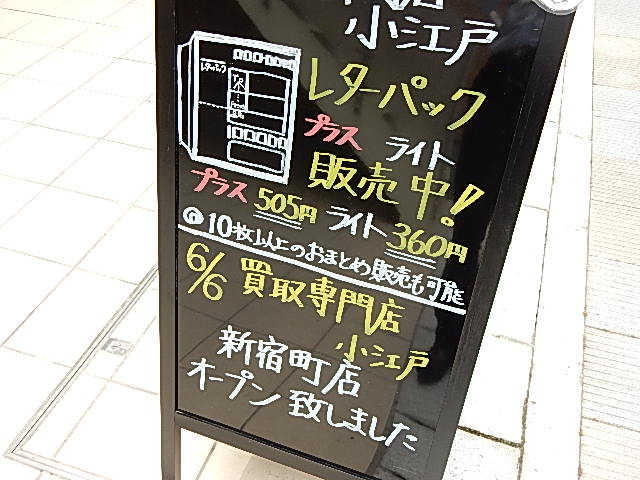 小江戸
レターパック
レターパック
プラス ライト
販売中!
プラス 505円 ライト 360円
◎10枚以上のおまとめ販売も可能
6/6 買取専門店
小江戸
新宿町店
オープン致しました